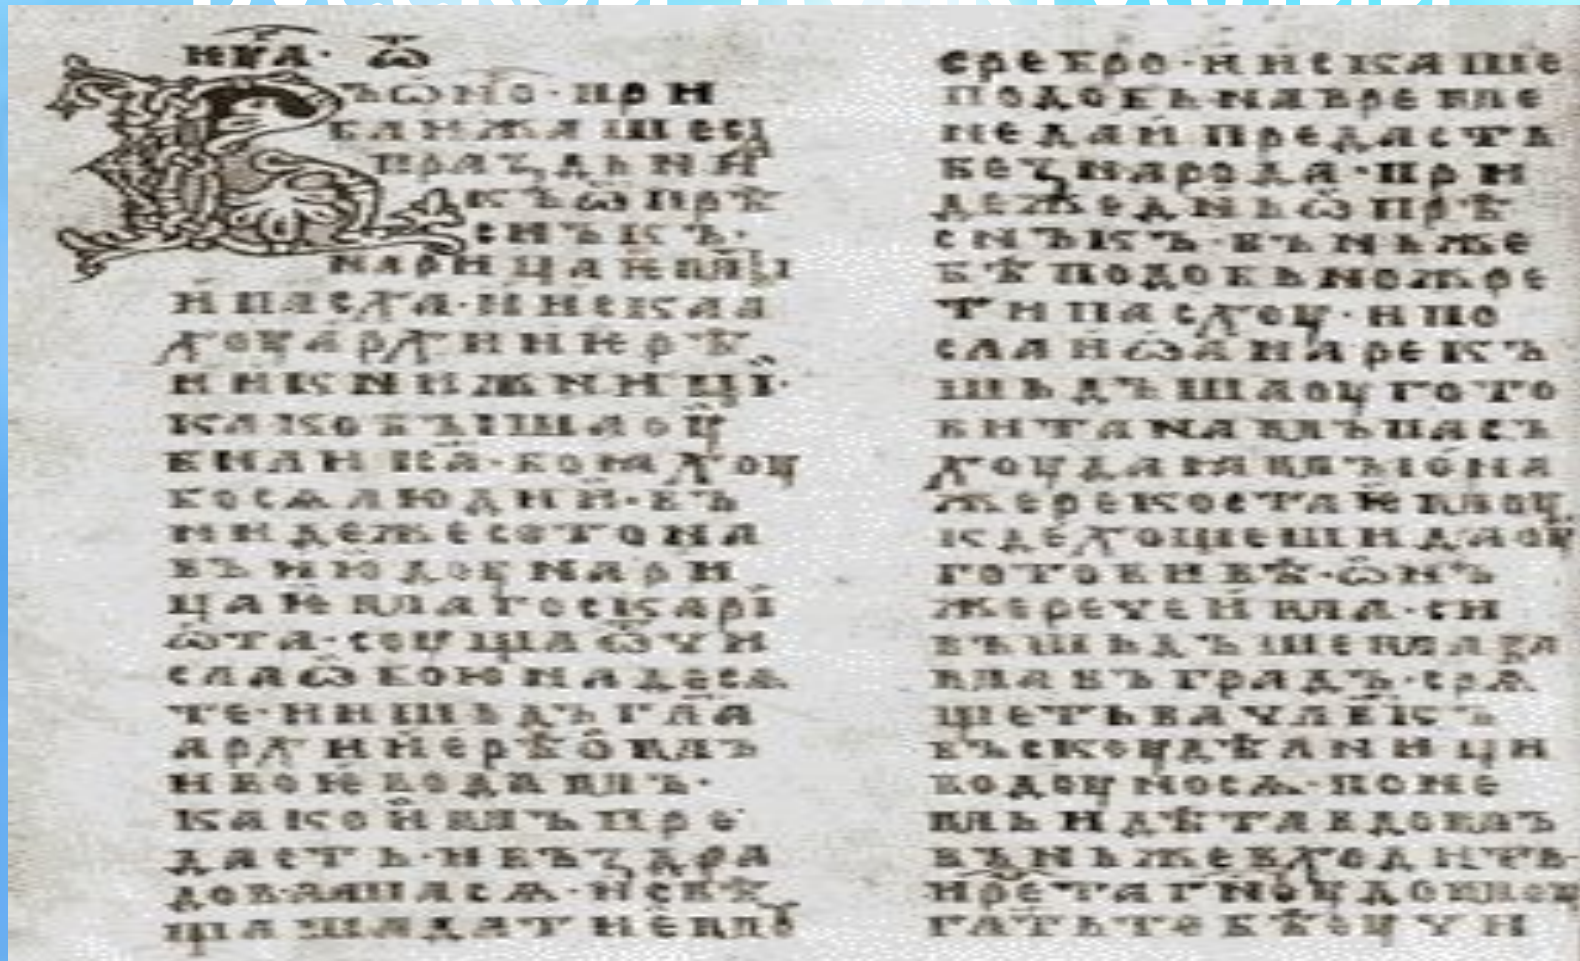 ꙊѠНО· ПРИ
БЛИЖАШЕСѦ
ПРАЗДЬНИ
КЪ ѾПРѢ
СНЪКЪ·
НАРИЦАѤМꙐ
И ПАСХА· И ИСКАА
ХОУ АРХИИЕРѢ
И И КНИЖНИЦІ·
КАКО БꙐША ОУ
БИЛИ И҃А· БОꙖХОУ
БОСѦ ЛЮДИИ· ВЪ
НИДЕ ЖЕ СОТОНА
ВЪ ИЮДОУ НАРИ
ЦАѤМАГО СКАРІ
ѠТА· СОУЩА Ѿ ЧИ
СЛА ѠБОЮ НА ДЕСѦ
ТЕ· И ИШЬДЪ ГЛ҃А
АРХИИЕРѢОМЪ
И ВОѤВОДАМЪ·
КАКО И ИМЪ ПРЕ
ДАСТЬ· И ВЪЗДРА
ДОВАШАСѦ· И СВѢ
ЩАША ДАТИ ѤМОУ
СРЕБРО· И ИСКАШЕ
ПОДОБЬНА ВРЕМЕ
НЕ ДА И ПРЕДАСТЬ
БЕЗ НАРОДА· ПРИ
ДЕ ЖЕ ДНЬ ѾПРѢ
СНЪКЪ· ВЪ НЬЖЕ
БѢ ПОДОБЬНО ЖРЕ
ТИ ПАСХОУ· И ПО
СЛА И҃ѠАНА РЕКЪ
ШЬДЪША ОУГОТО
ВИТА НАМЪ ПАСЪ
ХОУ ДА ꙖМЪ ІОНА
ЖЕ РЕКОСТА ѤМОУ
КДЕ ХОЩЕШИ ДА ОУ
ГОТОВИВѢ· ѠНЪ
ЖЕ РЕЧЕ ИМА· СИ
ВЪШЬДЪШЕМА ВА
МА ВЪ ГРАДЪ· СРѦ
ЩЕТЬ ВА ЧЛ҃ВКЪ
ВЪ СКОУДѢЛНИЦИ
ВОДОУ НОСѦ· ПО НЕ
МЬ ИДѢТА В ДОМЪ
ВЪ НЬЖЕ ВХОДИТЬ·
И РЕ҃ТА Г҃НОУ ДОМОУ
ГЛ҃АТЬ ТЕБѢ ОУЧИ